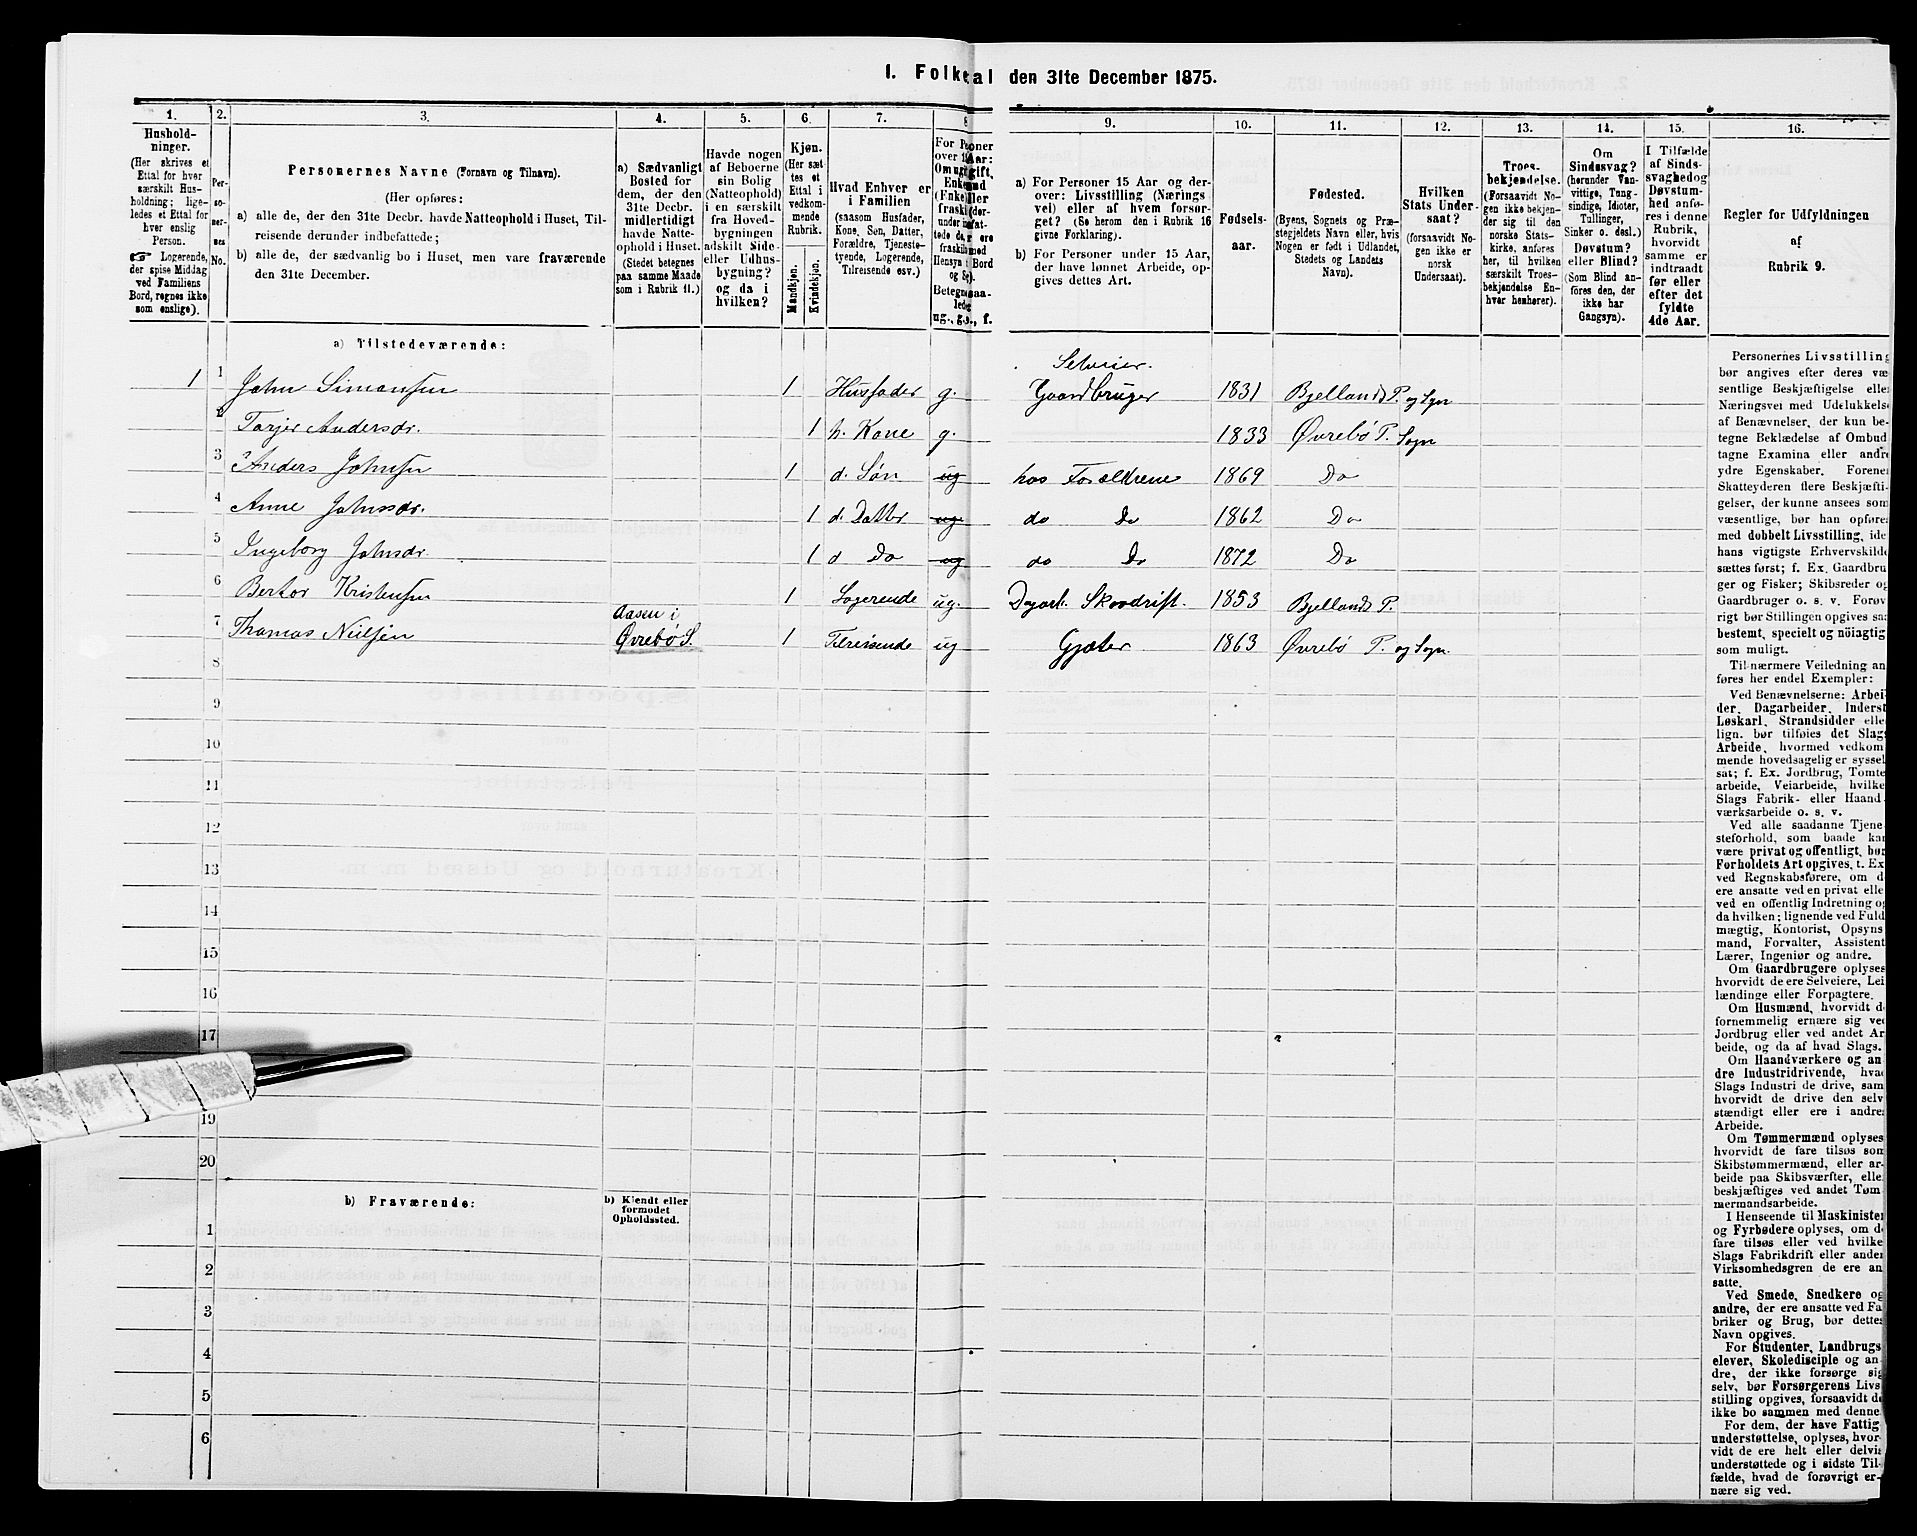 I. Folketal den 31te December 1875.
1. 2. 3. 4. 5. 6. 7. 8 9. 10. 11. 12. 13. 14. 15. 16.
Hushold-
ninger.
(Her skrives et
Ettal for hver
særskilt Hus-
holdning; lige-
ledes et Ettal for
hver enslig
Person.
Logerende,
der spise Middag
ved Familiens
Bord, regnes ikke
som enslige).
Per-
so-
ner-
nes
No.
Personernes Navne (Fornavn og Tilnavn).
(Her opføres:
a) alle de, der den 31te Decbr. havde Natteophold i Huset, Til-
reisende derunder indbefattede;
b) alle de, der sædvanlig bo i Huset, men vare fraværende
den 31te December.
a) Sædvanligt
Bosted for
dem, der den
31te Decbr.
midlertidigt
havde Natte-
ophold i Huset.
(Stedet betegnes
paa samme Maade
som i Rubrik 11.)
Havde nogen
af Beboerne
sin Bolig
(Natteophold)
i en særskilt
fra Hoved-
bygningen
adskilt Side-
eller Udhus-
bygning?
og da i
hvilken?
Kjøn.
(Her sæt
tes et
Ettal i
vedkom-
mende
Rubrik.
Mandkjøn.
Kvindekjøn.
Hvad Enhver er
i Familien
(saasom Husfader,
Kone, Søn, Datter,
Forældre, Tjeneste-
tyende, Logerende,
Tilreisende osv.)
a) For Personer 15 Aar og der-
over: Livsstilling (Nærings
vei) eller af hvem forsør-
get? (Se herom den i Rubrik 16
givne Forklaring).
b) For Personer under 15 Aar,
der have lønnet Arbeide, op-
gives dettes Art.
Fødsels-
aar.
Fødested.
(Byens, Sognets og Præ-
stegjeldets Navn eller, hvis
Nogen er født i Udlandet,
Stedets og Landets
Navn).
Hvilken
Stats Under-
saat?
(forsaavidt No-
gen ikke er
norsk
Undersaat).
Troes-
bekjendelse.
(Forsaavidt No-
gen ikke bekjen-
der sig til den
norske Stats-
kirke, anføres
her, til hvilken
særskilt Troes-
bekjendelse En-
hver henhører).
Om
Sindssvag?
(herunder Van-
vittige, Tung-
sindige, Idioter,
Tullinger,
Sinker o. desl.)
Døvstum?
eller Blind?
(Som Blind an-
føres den, der
ikke har
Gangsyn).
I Tilfælde
af Sinds-
svaghed og
Døvstum-
hed anfø-
res i denne
Rubrik,
hvorvidt
samme er
indtraadt
før eller
efter det
fyldte
4de Aar.
Regler for Udfyldningen
af
Rubrik 9.
a) Tilstedeværende:
Selveier.
1 1 John Simonsen 1 Husfader g. Gaardbruger 1831 Bjellands P. og Sogn
2 Tarjer Andersdr. 1 h. Kone g. 1833 Øvrebö P. Sogn
3 Anders Johnsen 1 d. Sön ug hos Forældrene 1869 Do
4 Anne Johnsdr. 1 d. Datter ug. do Do 1862 Do
5 Ingeborg Johnsdr. 1 d Do ug do Do 1872 Do
6 Kristensen 1 Logerende ug. Dagarb. Skovdrift. 1853 Bjellands P.
Aasen i
7 Thomas Neilsen Øvrebö S. 1 Tilreisende ug Gjæter 1863 Øvrebö P. og Sogn.
8
9
10
11
12
13
14
15
16
17
19
20
b) Fraværende:
b) Kjendt eller
formodet
Opholdssted.
1
2
3
4
5
6
Personernes Livsstilling
bør angives efter deres væ
sentlige Beskjæftigelse eller
Næringsvei med Udelukkelse
af Benævnelser, der kun be-
tegne Beklædelse af Ombud
tagne Examina eller andre
ydre Egenskaber. Forener
Skatteyderen flere Beskjæfti-
gelser, der kunne ansees som
væsentlige, bør han opføres
med dobbelt Livsstilling, ide
hans vigtigste Erhvervskilde
sættes først; f. Ex. Gaardbru
ger og Fisker; Skibsreder og
Gaardbruger o. s. v. Forøv
rigt bør Stillingen opgives saa
bestemt, specielt og nöiagtig
som muligt.
Til nærmere Veiledning an
føres her endel Exempler:
Ved Benævnelserne: Arbei
der, Dagarbeider, Inderst
Løskarl, Strandsidder elle
lign. bør tilføies det Slags
Arbeide, hvormed vedkom
mende hovedsagelig er syssel
sat; f. Ex. Jordbrug, Tomte
arbeide, Veiarbeide, hvilke
Slags Fabrik- eller Haand
værksarbeide o. s. v.
Ved alle saadanne Tjene
steforhold, som baade kan
være privat og offentligt, bør
Forholdets Art opgives, f. Ex
ved Regnskabsførere, om d
ere ansatte ved en privat elle
ved en offentlig Indretning og
da hvilken; lignende ved Fuld
mægtig, Kontorist, Opsyns
mand, Forvalter, Assistent
Lærer, Ingeniør og andre.
Om Gaardbrugere oplyses
hvorvidt de ere Selveiere, Lei
lændinge eller Forpagtere.
Om Husmænd, hvorvidt d
fornemmelig ernære sig ved
Jordbrug eller ved andet Ar
beide, og da af hvad Slags.
Om Haandværkere og an
dre Industridrivende, hvad
Slags Industri de drive, sam
hvorvidt de drive den selv
stændigt eller ere i andres
Arbeide.
Om Tømmermænd oplyses
hvorvidt de fare tilsøs som
Skibstømmermænd, eller ar-
beide paa Skibsværfter, elle
beskjæftiges ved andet Tøm
mermandsarbeide.
I Henseende til Maskinister
og Fyrbødere oplyses, om d
fare tilsøs eller ved hvilke
Slags Fabrikdrift eller anden
Virksomhedsgren de ere an
satte.
Ved Smede, Snedkere og
andre, der ere ansatte ved Fa
briker og Brug, bør dettes
Navn opgives.
For Studenter, Landbrugs
elever, Skoledisciple og an-
dre, der ikke forsørge sig
selv, bør Forsørgerens Livs
stilling opgives, forsaavidt de
ikke bo sammen med denne.
For dem, der have Fattig
understøttelse, oplyses, hvor-
vidt de ere helt eller delvis
understøttede og i sidste Til-
fælde, hvad de forøvrigt er-
nære sig ved.